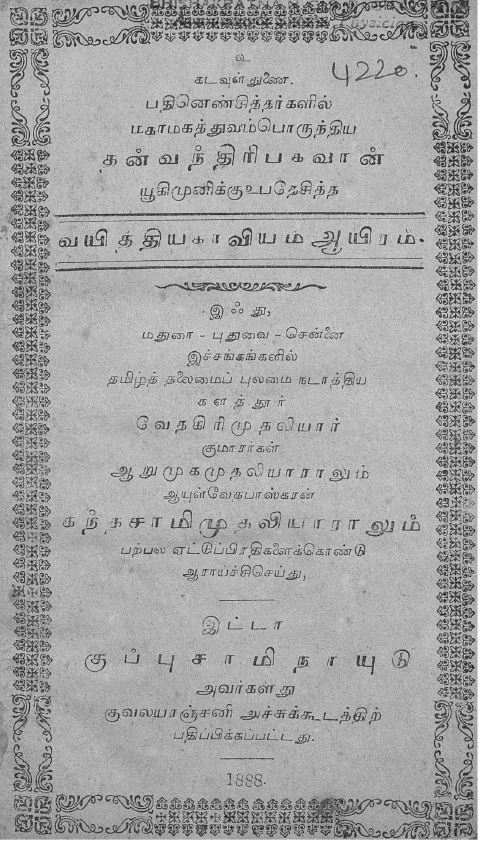 உ
4220.
கடவுள்துணை.
பதினெண்சித்தர்களில்
மகாமகத்துவம்பொருந்திய
தன்வந்திரிபகவான்
யூகிமுனிக்குஉபதேசித்த
வயித்தியகாவியம் ஆயிரம்.
இஃது,
மதுரை - புதுவை - சென்னை
இச்சங்கங்களில்
தமிழ்த் தலைமைப் புலமை நடாத்திய
களத்தூர்
வேதகிரிமுதலியார்
குமாரர்கள்
ஆறுமுகமுதலியாராலும்
ஆயுள்வேதபாஸ்கரன்
கந்தசாமிமுதலியாராலும்
பற்பல ஏட்டுப்பிரதிகளைக்கொண்டு
ஆராய்ச்சிசெய்து,
இட்டா
குப்புசாமிநாயுடு
அவர்களது
குவலயரஞ்சனி அச்சுக்கூடத்திற்
பதிப்பிக்கப்பட்டது.
1888.